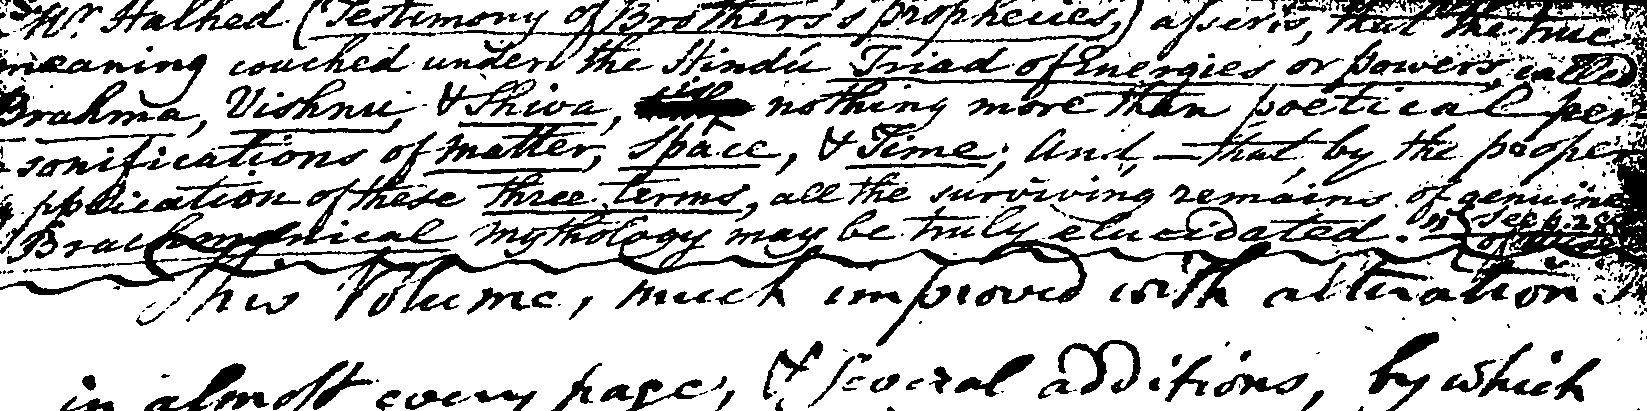 Mr. Halhed (Testimony of Brothers's prophecies,) asserts, that the true
meaning couched under the Hindú Triad of Energies or powers, called
Brahma, Vishnu, & Shiva, nothing more than poetical per
sonifications of matter, space, & Time; And, — that, by the prope
application of these three terms, all the surviving remains of genuine
Brachmanical mythology may be truly elucidated.
This Volume, much improved with alterations
in almost every page, & several additions, by which